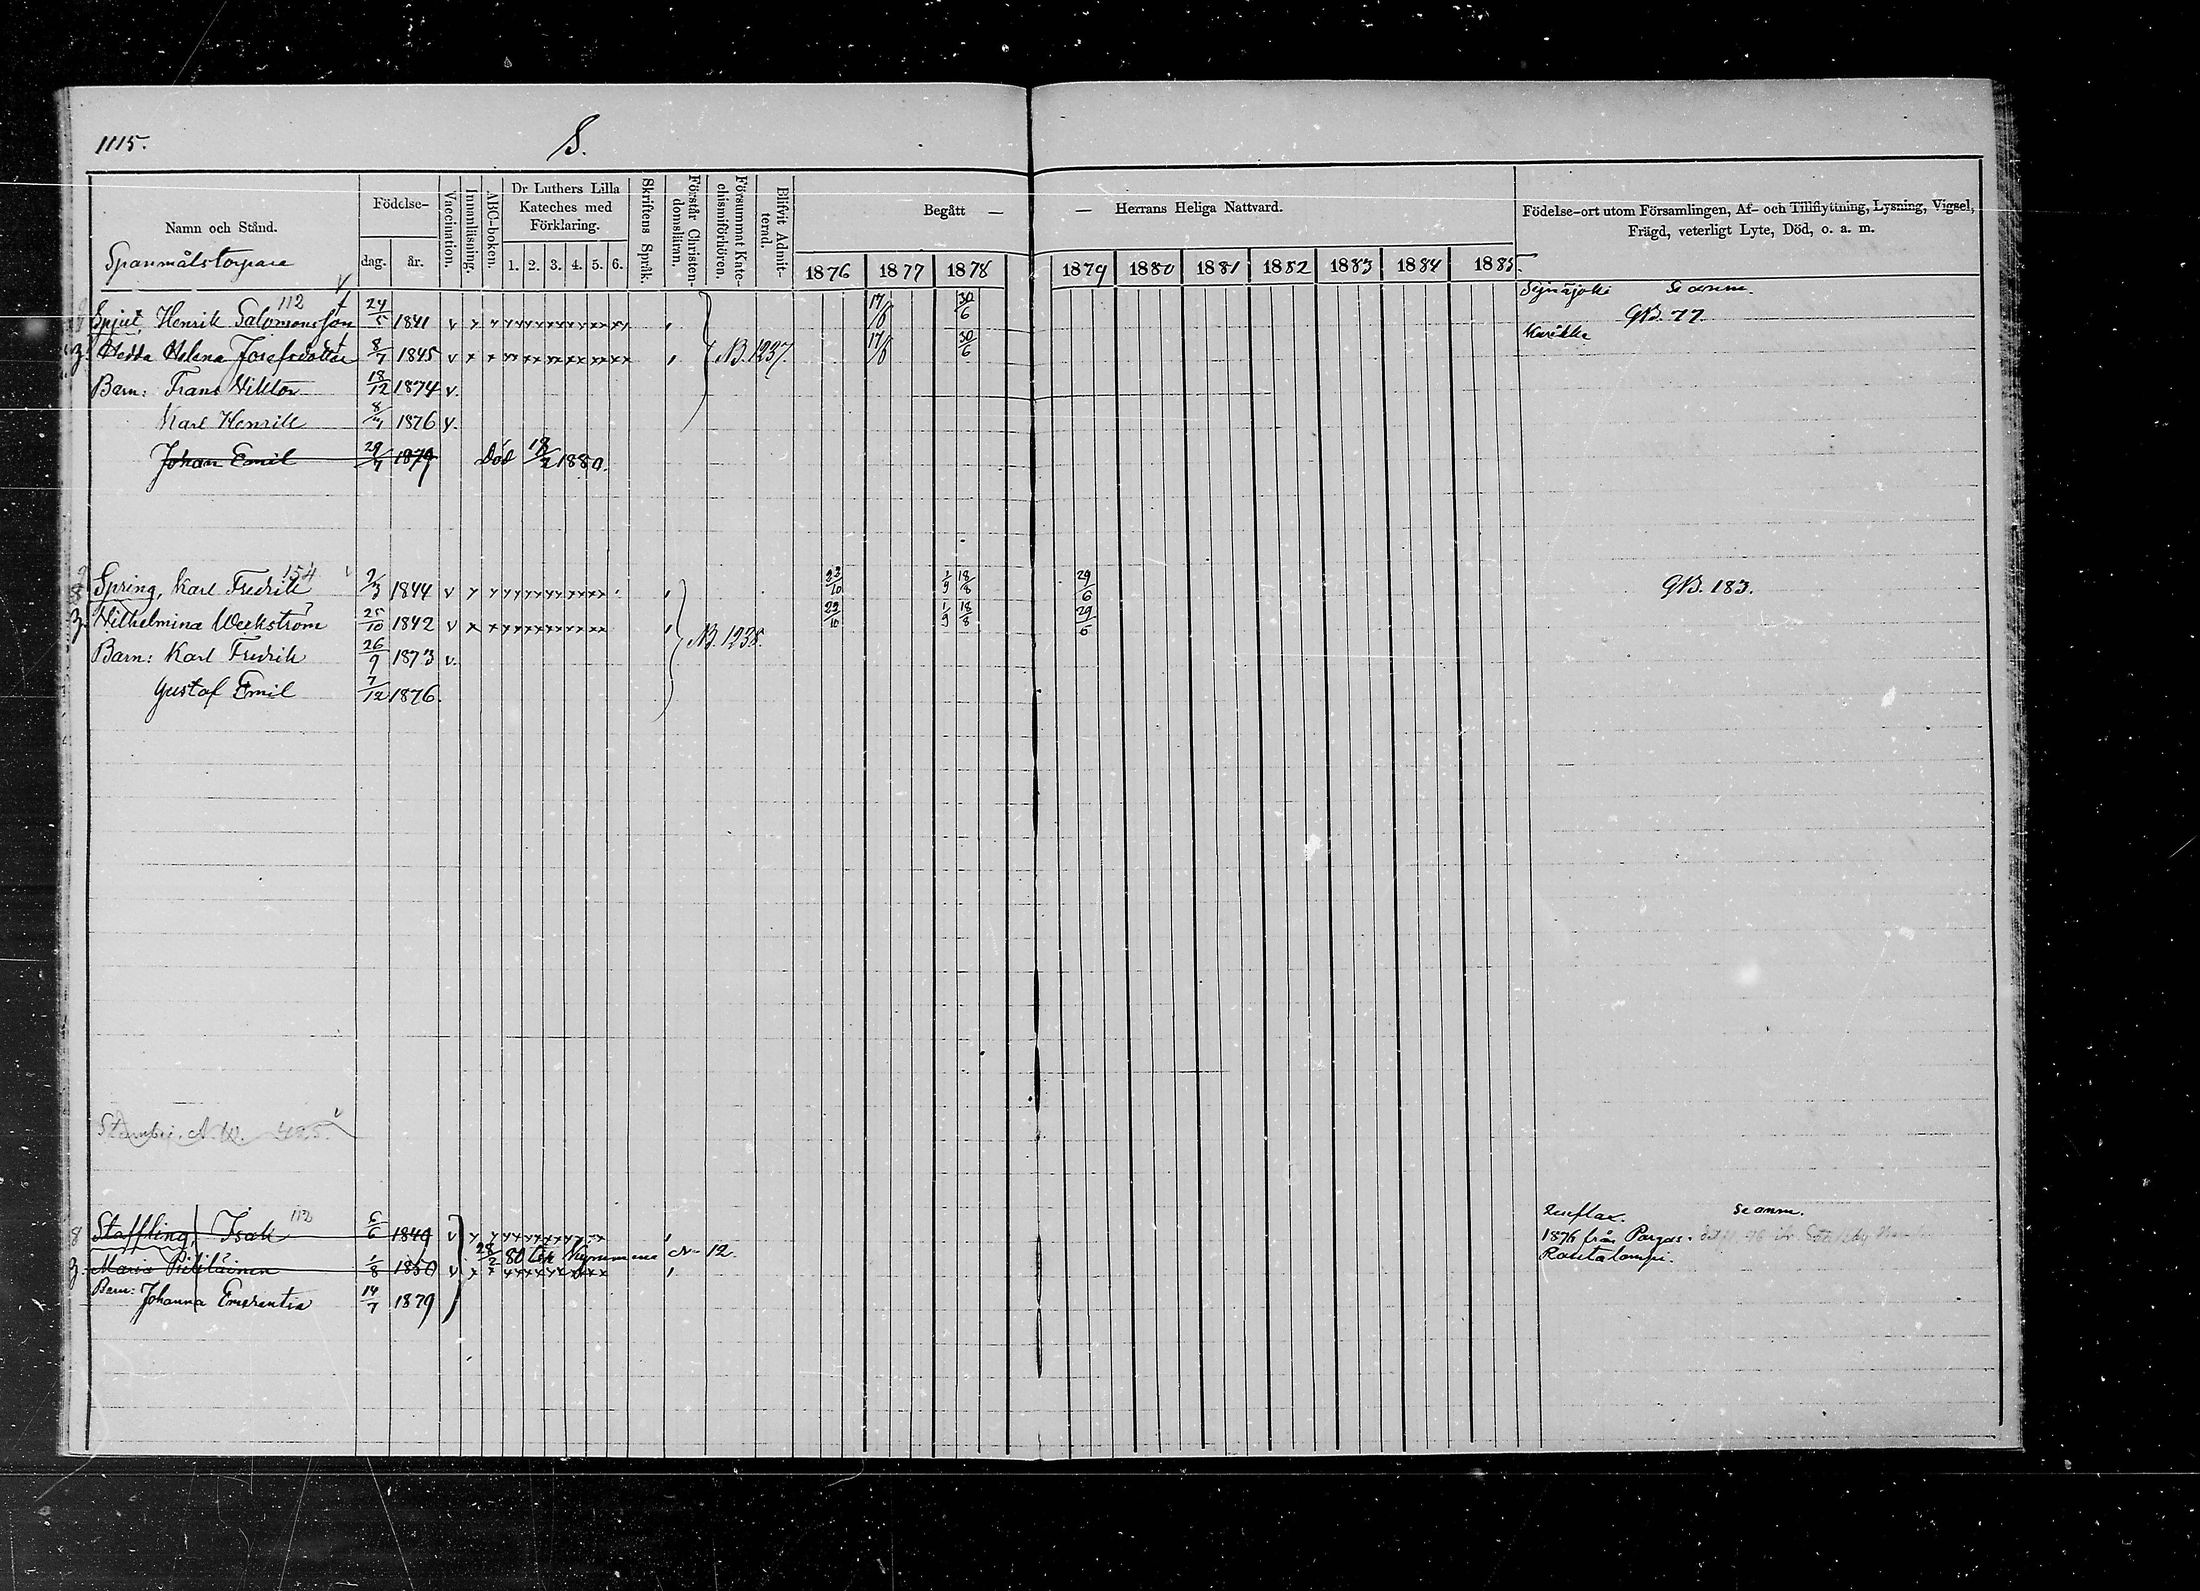 1115. S.
Namn och Stånd. Födelse- Vaccination. Innanläsning. ABC-boken. Dr Luthers Lilla Kateches med Förklaring. Skriftens Språk. Förstår Christendomsläran. Försummat Katechismiförhören. Blifvit Admitterad. Begått — — Herrans Heliga Nattvard. Födelse-ort utom Församlingen, Af- och Tillflyttning, Lysning, Vigsel, Frägd, veterligt Lyte, Död, o. a. m.
Spanmålstorpare
dag. år. 1. 2. 3. 4. 5. 6. 1876 1877 1878 1879 1880 1881 1882 1883 1884 1885.
112 Se anm.
Spjut, Henrik Salomonsson 24/5 1841 v 17/6 30/6 GB. 77.
Hedda Helena Josefsdotter 8/7 1845 v NB. 1237. 17/6 30/6
Barn: Frans Viktor 18/12 1874 v.
Karl Henrik 1876 v.
Johan Emil 29/7 1879 död 1880.
154
Spring, Karl Fredrik 2/3 1844 v 22/10 1/9 18/8 29/6 GB. 183.
Vilhelmina Weckström 25/10 1842 v NB. 1238. 22/10 1/9 18/8 29/6
Barn: Karl Fredrik 26/9 1873 v.
Gustaf Emil 7/12 1876.
425.
112 Se anm.
Staffling, Isak 6/6 1849 v 1876 från Pargas.
28/2 80 till Kymmene N- 12.
Maria 1/8 1850 v Rautalampi.
Barn: Johanna Emerentia 14/7 1879